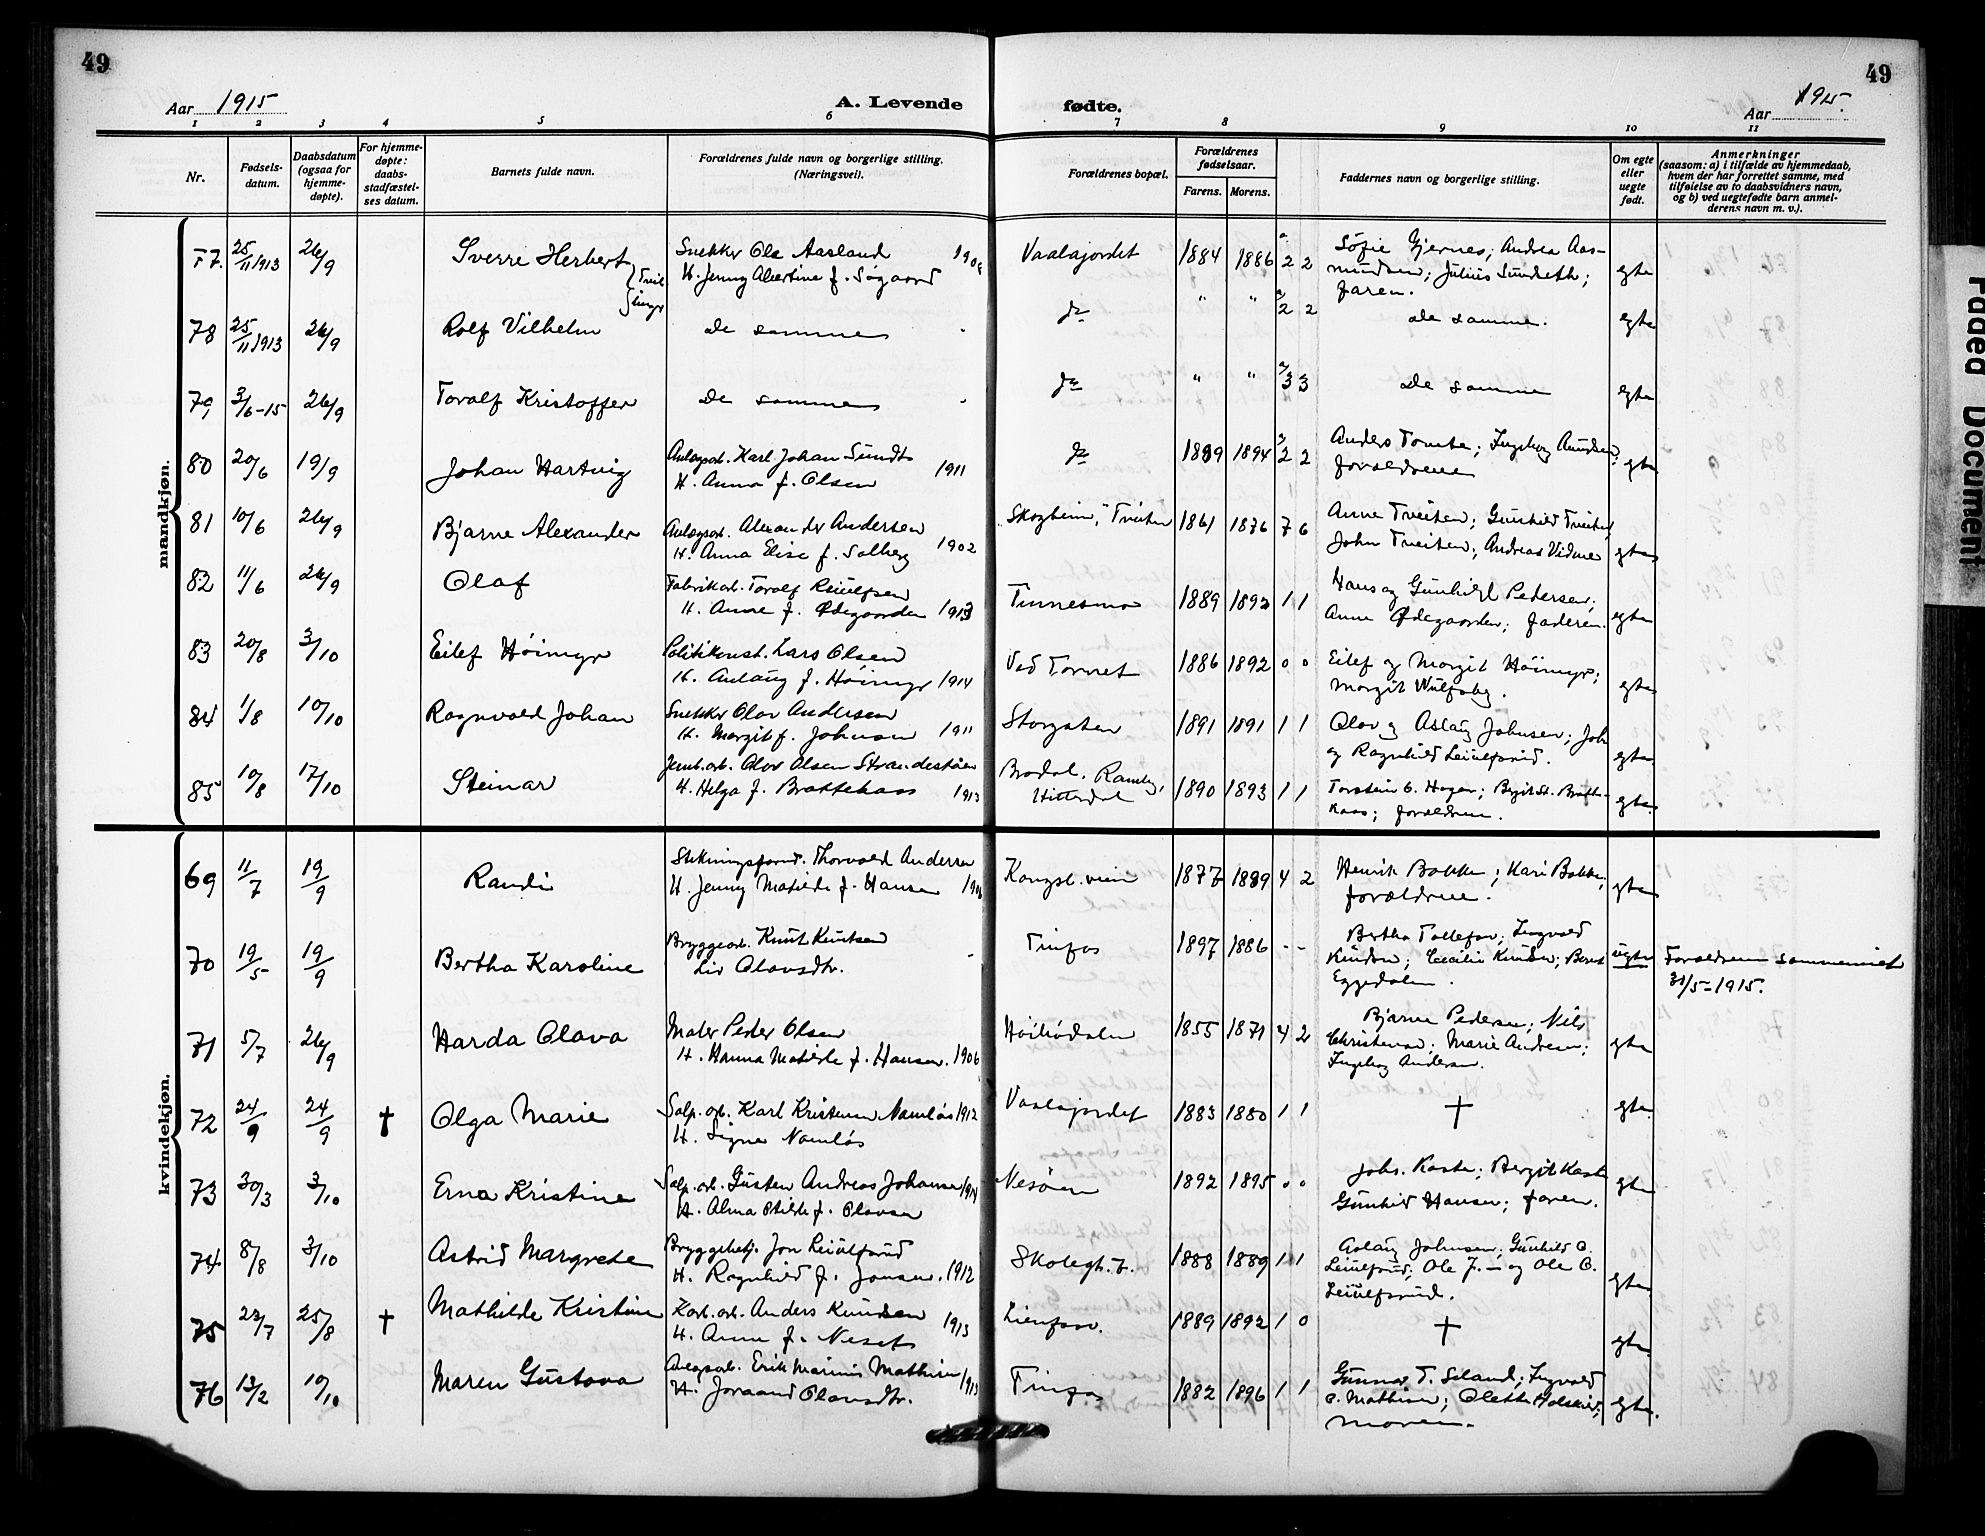 49
49
Aar 1915
A. Levende
fødte.
Aar 1915.
1 2 3 4 5 6 7 8 9 10 11
Nr.
Fødsels-
datum.
Daabsdatum
(ogsaa for
hjemme-
døpte).
For hjemme-
døpte:
daabs-
stadfæstel-
ses datum.
Barnets fulde navn.
Forældrenes fulde navn og borgerlige stilling.
(Næringsvei.)
Forældrenes bopæl.
Forældrenes
fødselsaar.
Farens. Morens.
Faddernes navn og borgerlige stilling.
Om egte
eller
uegte
født.
Anmerkninger
(saasom: a) i tilfælde av hjemmedaab,
hvem der har forrettet samme, med
tilføielse av to daabsvidners navn,
og b) ved uegtefødte barn anmel-
derens navn m. v.).
mandkjøn.
77. 25/11 1913 26/9 Sverre Herbert Snekker Ole Aasland Vaalajordet 1884 1886 2 2 Søfie Gjernes; Andrea Aas-
H. Jenny Albertine f. Søgaard mundsen; Julius Sundeth; egte
faren.
78 25/11 1913 26/9 Rolf Vilhelm De samme do " " 2 2 de samme. egte
79 3/6-15 26/9 Toralf Kristoffer De samme do " " 3 3 de samme egte
80 20/6 19/9 Johan Hartvig Anlægsarb. Karl Johan Sundt 1911 do 1889 1894 2 2 Anders Tomte; Ingeborg Amundsen; egte
H. Anna f. Olsen forældrene
81 10/6 26/9 Bjarne Alexander Anlægsarb. Alexander Andersen 1902 "Skogheim," Tveiten 1861 1876 7 6 Anne Tveiten; Gunhild Tveiten;
H. Anna Elise f. Solberg John Tveiten; Andreas Vidme egte
82 11/6 26/9 Olaf Fabrikarb. Toralf Reiulfsen Tinnesmo 1889 1892 1 1 Hans og Gunhild Pedersen;
H. Anne f. Ødegaarden 1913 Anne Ødegaarden; faderen. egte
83 20/8 3/10 Eilef Høimyr Politikonst. Lars Olsen Ved Tornet 1886 1892 0 0 Eilef og Margit Høimyr;
H. Aslaug f. Høimyr 1914 Margit Wulfsby. egte
84 1/8 10/10 Ragnvald Johan Snekker Olav Andersen Storgaten 1891 1891 1 1 Olav og Aslaug Johnsen; Joh.
H. Margit f. Johnsen 1911 og Ragnhild Leiulfsrud. egte
85 10/8 17/10 Steinar Jernb.arb. Olav Olsen Strandestøen Brodal. Ramberg, 1890 1893 1 1 Torstein O. Hagen; Birgit St. Bratte-
H. Helga f. Brattekaas 1913 Hitterdal kaas; forældrene. egte
kvindekjøn.
69 11/7 19/9 Randi Stikningsformd. Thorvald Andersen Kongsb. veien 1877 1889 4 2 Henrik Bakke; Kari Bakke;
H. Jenny Matilde f. Hansen forældrene. egte
70 19/5 19/9 Bertha Karoline Bryggearb. Knut Knutsen - Tinfos 1897 1886 - - Bertha Tollefsen; Ingvald
Liv Olavsdtr. Knudsen; Cecilie Knudsen; Berit uegte Forældrene sammenviet
Eggedalen. 30/5-1915.
71 5/7 26/9 Harda Olava Maler Peder Olsen Høibødalen 1855 1871 4 2 Bjarne Pedersen; Nils
H. Hanna Matilde f. Hansen. 1906 Christensen; Marie Andresen; egte
Ingeborg Andersen.
72 24/9 24/9 † Olga Marie Salp. arb. Karl Kristensen Namløs 1912 Vaalajordet 1883 1880 1 1 † egte
H. Signe Namløs
73 30/3 3/10 Erna Kristine Salp. arb. Gusten Andreas Johansen 1914 Nesøen 1892 1895 0 0 Johs. Kaste; Bergit Kaste
H. Alma Otilde f. Olavsen Gunhild Hansen; faren. egte
74 8/8 3/10 Astrid Margrete Bryggebetj. Jon Leiulfsrud Skolegt. 7. 1888 1889 1 1 Aslaug Johnsen; Gunhild O.
H. Ragnhild f. Jonsen. 1912 Leiulfsrud; Ole J. — og Ole O. egte
Leiulfsrud.
75 23/7 25/8 † Mathilde Kristine Karb. arb. Anders Knudsen 1913 Lienfoss. 1889 1892 1 0 † egte
H. Anne f. Neset
76 13/2 10/10 Maren Gustava Anlægsarb. Erik Marinus Mathisen 1913 Tinfos 1882 1896 1 1 Gunnar T. Seland; Ingvald
H. Joraand Olavsdtr. O. Mathisen; Olette Aslesen; egte.
moren.
Faded Document